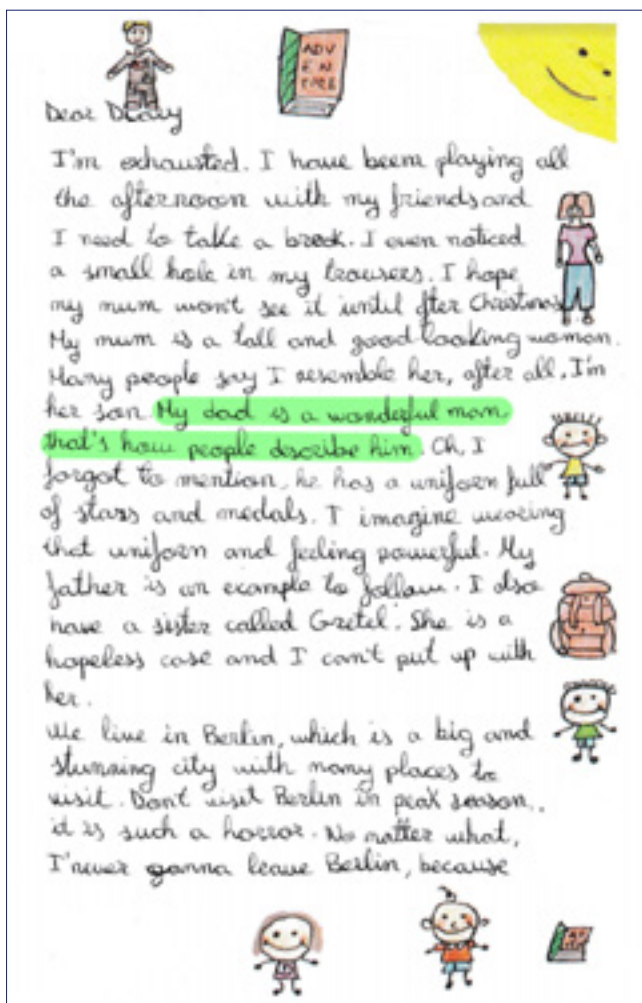 ADV
EN
TURE
Dear Diary
I'm exhausted. I have been playing all
the afternoon with my friends and
I need to take a break. I even noticed
a small hole in my trousers. I hope
my mum won't see it until fter Christmas.
My mum is a tall and good looking woman.
Many people say I resemble her, after all, I'm
her son. My dad is a wonderful man,
that's how people describe him. Oh, I
forgot to mention, he has a uniform full
of stars and medals. I imagine wearing
that uniform and feeling powerful. My
father is an example to follow. I also
have a sister called Gretel. She is a
hopeless case and I can't put up with
her.
We live in Berlin, which is a big and
stunning city with many places to
visit. Don't visit Berlin in peak season,
it is such a horror. No matter what,
I'never gonna leave Berlin, because